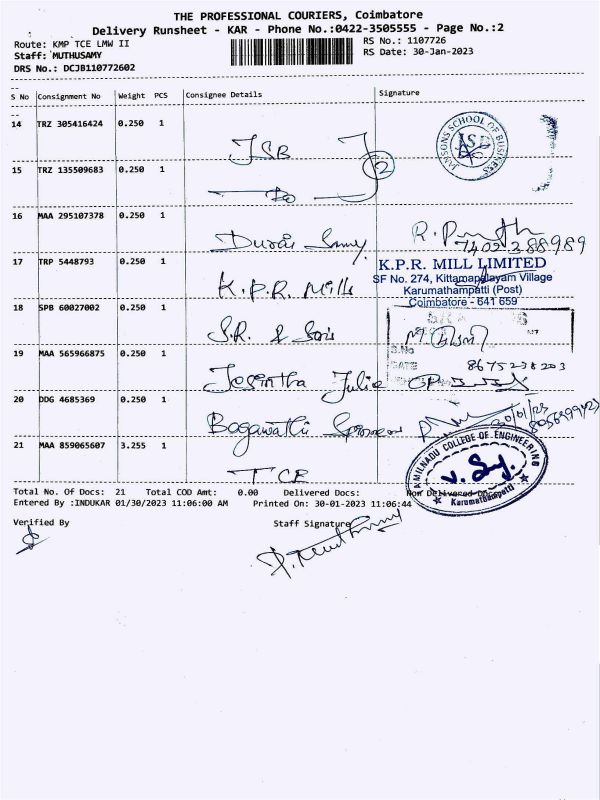 THE PROFESSIONAL COURIERS, Coimbatore
Delivery Runsheet - KAR - Phone No.:0422-3505555 - Page No.:2
Route: KMP TCE LMW II
RS No.: 1107726
Staff: MUTHUSAMY
RS Date: 30-Jan-2023
DRS No.: DCJB110772602
S No Consignment No Weight PCS Consignee Details Signature
14 TRZ 305416424 0.250 1
JSB
JANSONS SCHOOL OF BUSINESS
JSB
2
15 TRZ 135509683 0.250 1
Do
16 MAA 295107378 0.250 1
Durai Samy
7402388989
17 TRP 5448793 0.250 1
K.P.R. Mills
K.P.R. MILL LIMITED
SF No. 274, Kittampalayam Village
Karumathampatti (Post)
Coimbatore - 641 659
18 SPB 60027002 0.250 1
S.R. & Sons
S.No
DATE
19 MAA 565966875 0.250 1
8675238203
Josintha Julie
20 DDG 4685369 0.250 1
30/01/23
Bogawathi
21 MAA 859065607 3.255 1
TCE
TAMILNADU COLLEGE OF ENGINEERING
Karumathampatti
Total No. Of Docs: 21 Total COD Amt: 0.00 Delivered Docs: Non Delivered Docs:
Entered By :INDUKAR 01/30/2023 11:06:00 AM Printed On: 30-01-2023 11:06:44
Verified By
Staff Signature